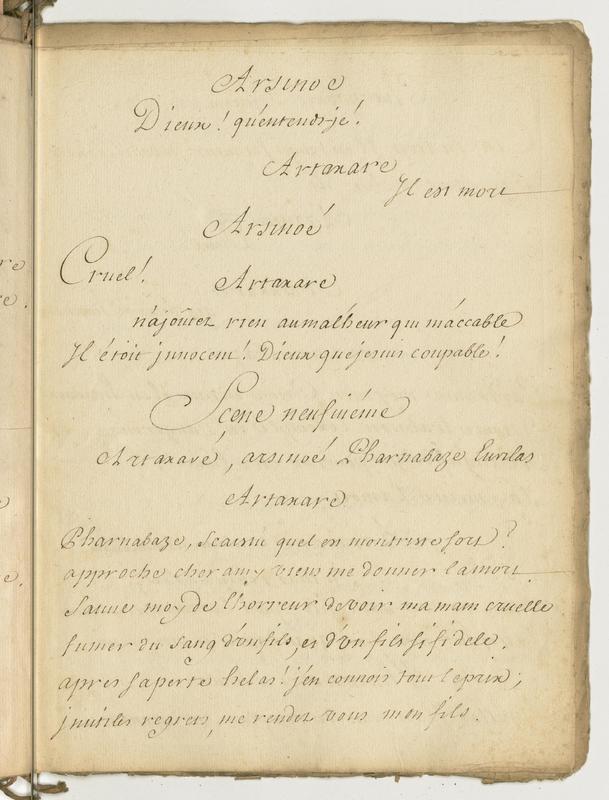 Arsinoe
Dieux! qu'entends-je!
Artaxare
Il est mort
Arsinoé
Cruel!
Artaxare
n'ajoûtez rien au malheur qui m'áccable
Il étoit jnnocent! Dieux que je suis coupable!
Scene neufviéme
Artaxaré, arsinoé Pharnabaze Eurilas
Artaxare
Pharnabaze, scais tu quel est mon triste sort?
approche cher amy viens me donner la mort.
sauue moy de l'horreur de voir ma main cruelle
fumer du sang d'un fils, et d'un fils si fidele.
apres sa perte helas! j'en connois tout le prix;
jnutiles regrets, me rendez vous mon fils.
re
e.
e.